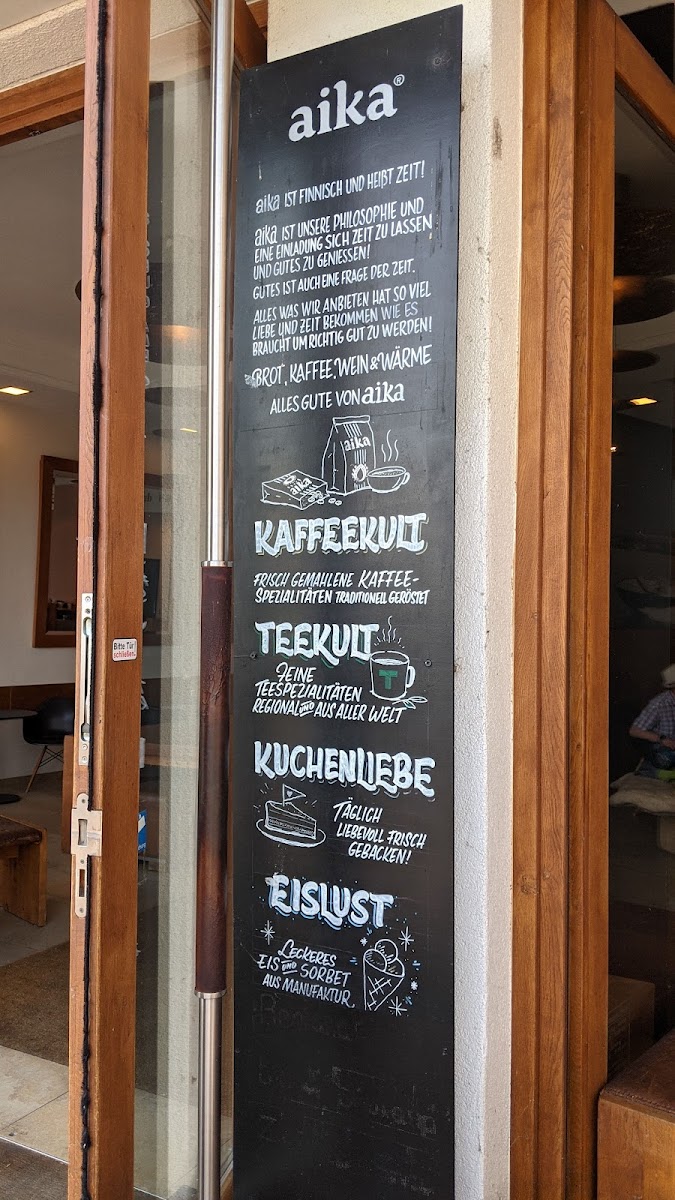 aika®
aika IST FINNISCH UND HEIßT ZEIT!
aika IST UNSERE PHILOSOPHIE UND
EINE EINLADUNG SICH ZEIT ZU LASSEN
UND GUTES ZU GENIESSEN!
GUTES IST AUCH EINE FRAGE DER ZEIT.
ALLES WAS WIR ANBIETEN HAT SO VIEL
LIEBE UND ZEIT BEKOMMEN WIE ES
BRAUCHT UM RICHTIG GUT ZU WERDEN!
BROT, KAFFEE, WEIN & WÄRME
ALLES GUTE VON aika
aika
aika
KAFFEEKULT
FRISCH GEMAHLENE KAFFEE-
SPEZIALITÄTEN TRADITIONELL GERÖSTET
TEEKULT
T
FEINE
TEESPEZIALITÄTEN
REGIONAL UND AUS ALLER WELT
KUCHENLIEBE
TÄGLICH
LIEBEVOLL FRISCH
GEBACKEN!
EISLUST
LECKERES
EIS UND SORBET
AUS MANUFAKTUR
Bitte Tür
schließen.